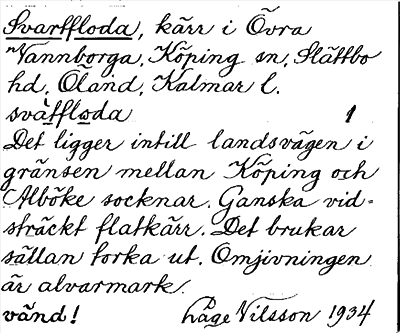 Svartfloda, kärr i Övra
Vannborga, Köping sn, Slättbo
hd, Öland, Kalmar l.
svàtfloda 1
Det ligger intill landsvägen i
gränsen mellan Köping och
Alböke socknar. Ganska vid-
sträckt flatkärr. Det brukar
sällan torka ut. Omgivningen
är alvarmark.
vänd! Åge Nilsson 1934